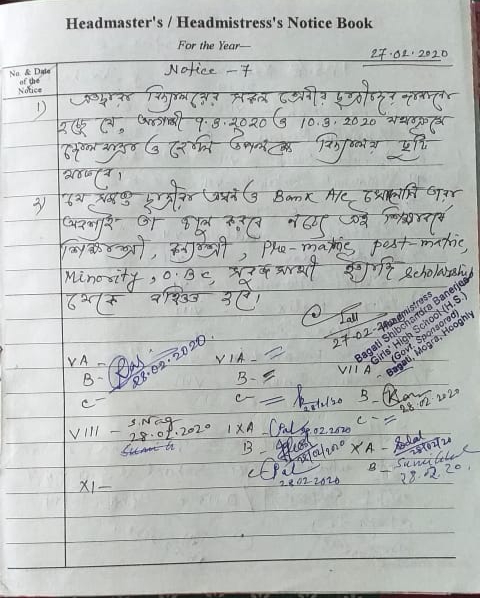 Headmaster's / Headmistress's Notice Book
For the Year—
27.02.2020
No. & Date of the Notice
Notice - 7
1) এতদ্বারা বিদ্যালয়ের সকল শ্রেণীর ছাত্রীদের জানানো
হচ্ছে যে, আগামী 9.3.2020 ও 10.3.2020 যথাক্রমে
দোলযাত্রা ও হোলি উপলক্ষে বিদ্যালয় ছুটি
থাকবে।
২) যে সমস্ত ছাত্রীরা এখনও Bank A/c খোলেনি তারা
অবশ্যই তা করবে নচেৎ এই শিক্ষাবর্ষে
শিক্ষাশ্রী, কন্যাশ্রী, Pre-matric, post-matric,
Minority, O.B.C, ইত্যাদি Scholarship
থেকে বঞ্চিত হবে।
27-02-
Headmistress
Bagati Shibchandra Banerjee
Girls' High School (H.S.)
(Govt. Sponsored)
Bagati, Mogra, Hooghly
VA - 28.02.2020 VIA - VIIA -
B - B - B - 28.02.2020
C - C - 28/2/20 C -
VIII - S. Nag 28.02.2020 IXA - Pal 28.02.2020
B - 28/02/2020 XA - 28/02/20
C - Pal 28.02.2020 B - 28.02.20.
XI -